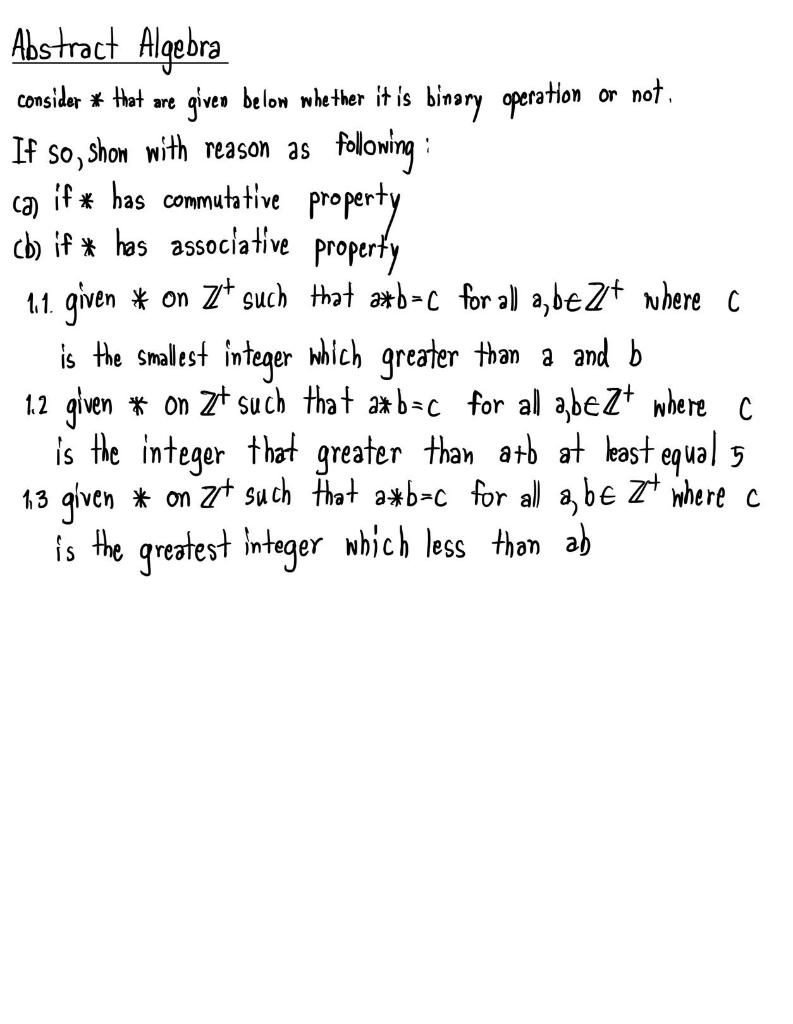 Abstract Algebra
consider * that are given below whether it is binary operation or not.
If so, show with reason as following :
(a) if * has commutative property
(b) if * has associative property
1.1. given * on ℤ⁺ such that a*b=c for all a,b∈ℤ⁺ where c
is the smallest integer which greater than a and b
1.2 given * on ℤ⁺ such that a*b=c for all a,b∈ℤ⁺ where c
is the integer that greater than a+b at least equal 5
1.3 given * on ℤ⁺ such that a*b=c for all a,b∈ ℤ⁺ where c
is the greatest integer which less than ab